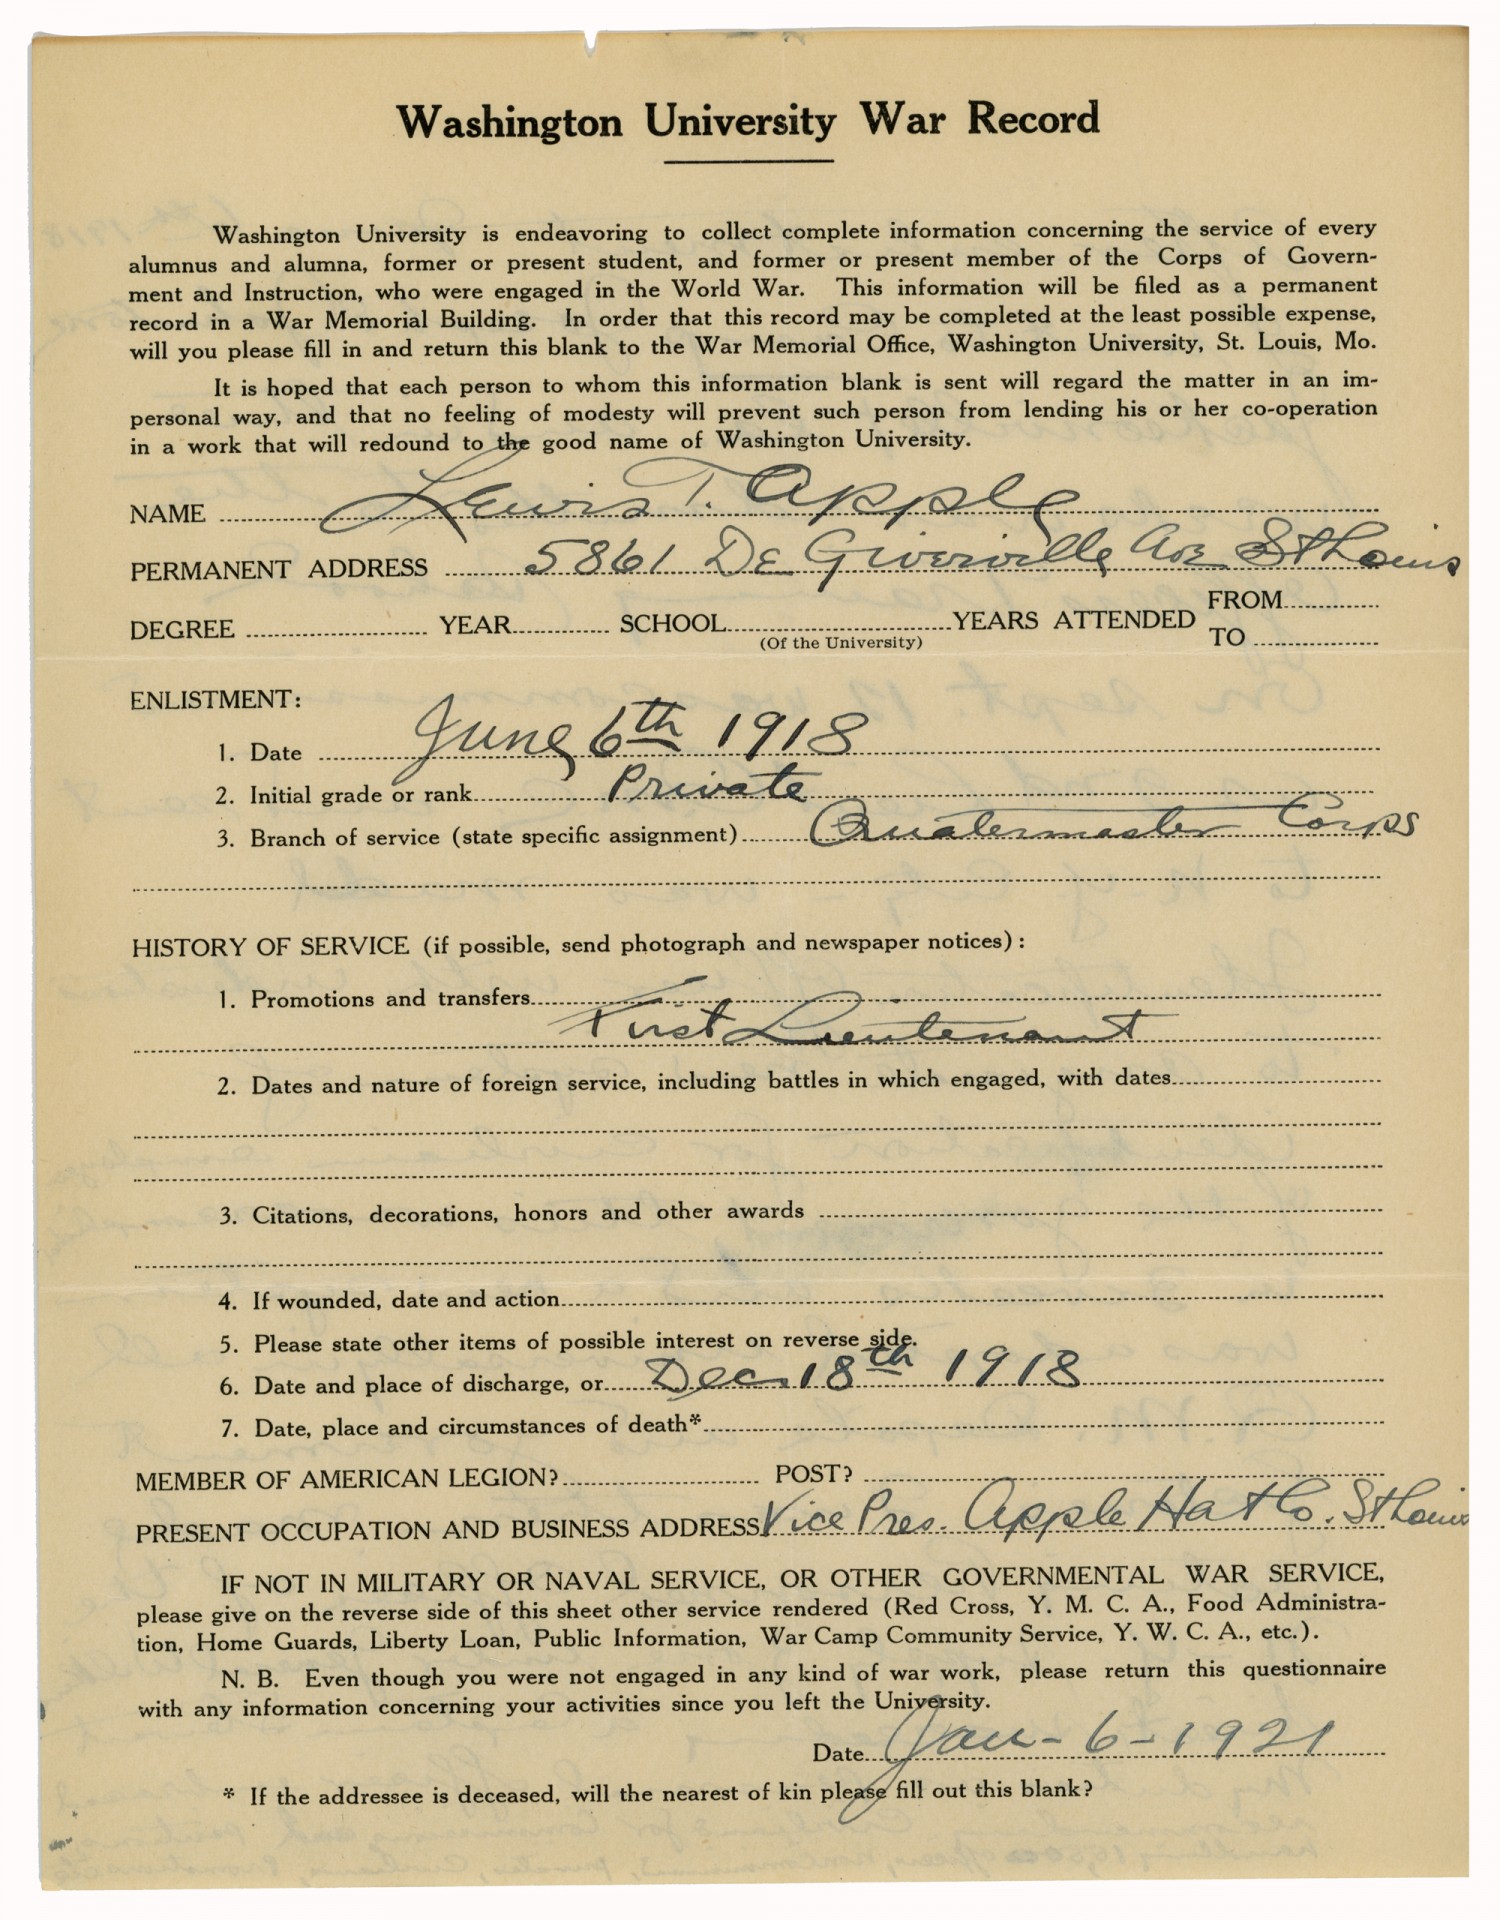 Washington University War Record
Washington University is endeavoring to collect complete information concerning the service of every
alumnus and alumna, former or present student, and former or present member of the Corps of Govern-
ment and Instruction, who were engaged in the World War. This information will be filed as a permanent
record in a War Memorial Building. In order that this record may be completed at the least possible expense,
will you please fill in and return this blank to the War Memorial Office, Washington University, St. Louis, Mo.
It is hoped that each person to whom this information blank is sent will regard the matter in an im-
personal way, and that no feeling of modesty will prevent such person from lending his or her co-operation
in a work that will redound to the good name of Washington University.
NAME Lewis T. Apple
PERMANENT ADDRESS 5861 De Giverville Ave St Louis
DEGREE YEAR SCHOOL (Of the University) YEARS ATTENDED FROM TO
ENLISTMENT:
1. Date June 6th 1918
2. Initial grade or rank Private
3. Branch of service (state specific assignment) Quatermaster Corps
HISTORY OF SERVICE (if possible, send photograph and newspaper notices):
1. Promotions and transfers
First Lieutenant
2. Dates and nature of foreign service, including battles in which engaged, with dates
3. Citations, decorations, honors and other awards
4. If wounded, date and action
5. Please state other items of possible interest on reverse side.
6. Date and place of discharge, or Dec. 18th 1918
7. Date, place and circumstances of death*
MEMBER OF AMERICAN LEGION? POST?
PRESENT OCCUPATION AND BUSINESS ADDRESS Vice Pres. Apple Hat Co. St Louis
IF NOT IN MILITARY OR NAVAL SERVICE, OR OTHER GOVERNMENTAL WAR SERVICE,
please give on the reverse side of this sheet other service rendered (Red Cross, Y. M. C. A., Food Administra-
tion, Home Guards, Liberty Loan, Public Information, War Camp Community Service, Y. W. C. A., etc.).
N. B. Even though you were not engaged in any kind of war work, please return this questionnaire
with any information concerning your activities since you left the University.
Date Jan-6-1921
* If the addressee is deceased, will the nearest of kin please fill out this blank?